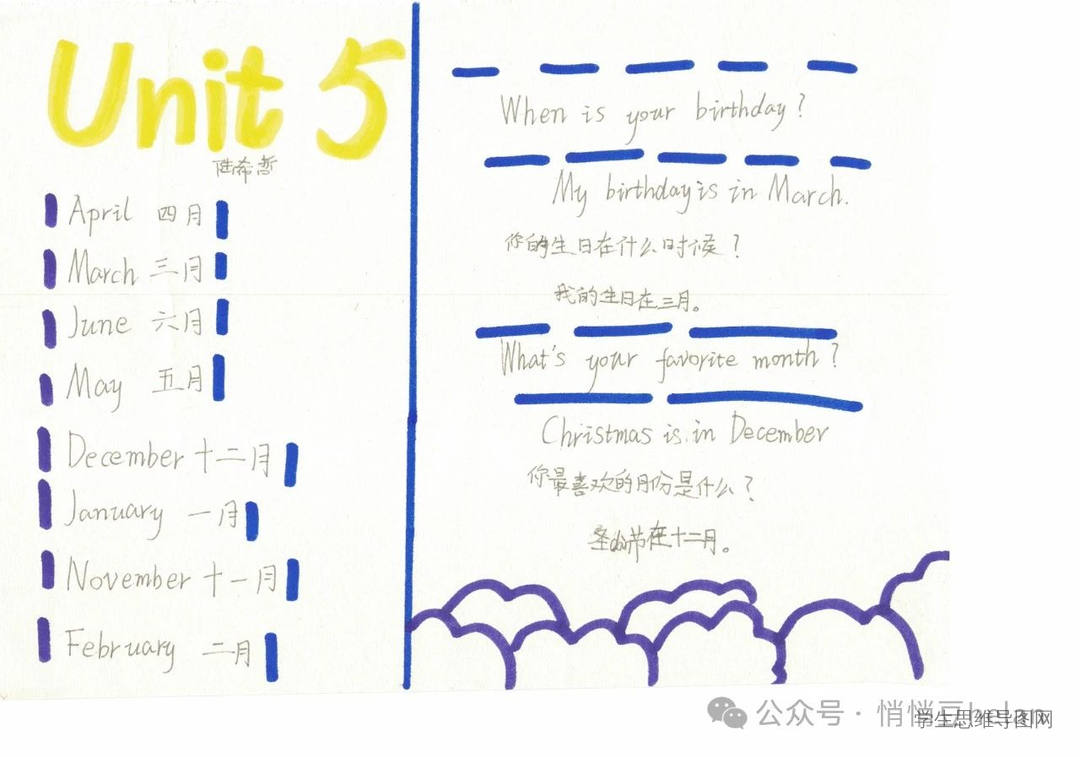 Unit 5
陆希哲
April 四月
March 三月
June 六月
May 五月
December 十二月
January 一月
November 十一月
February 二月
When is your birthday?
My birthday is in March.
你的生日在什么时候？
我的生日在三月。
What's your favorite month?
Christmas is in December
你最喜欢的月份是什么？
圣诞节在十二月。
公众号·悄悄豆
学生思维导图网